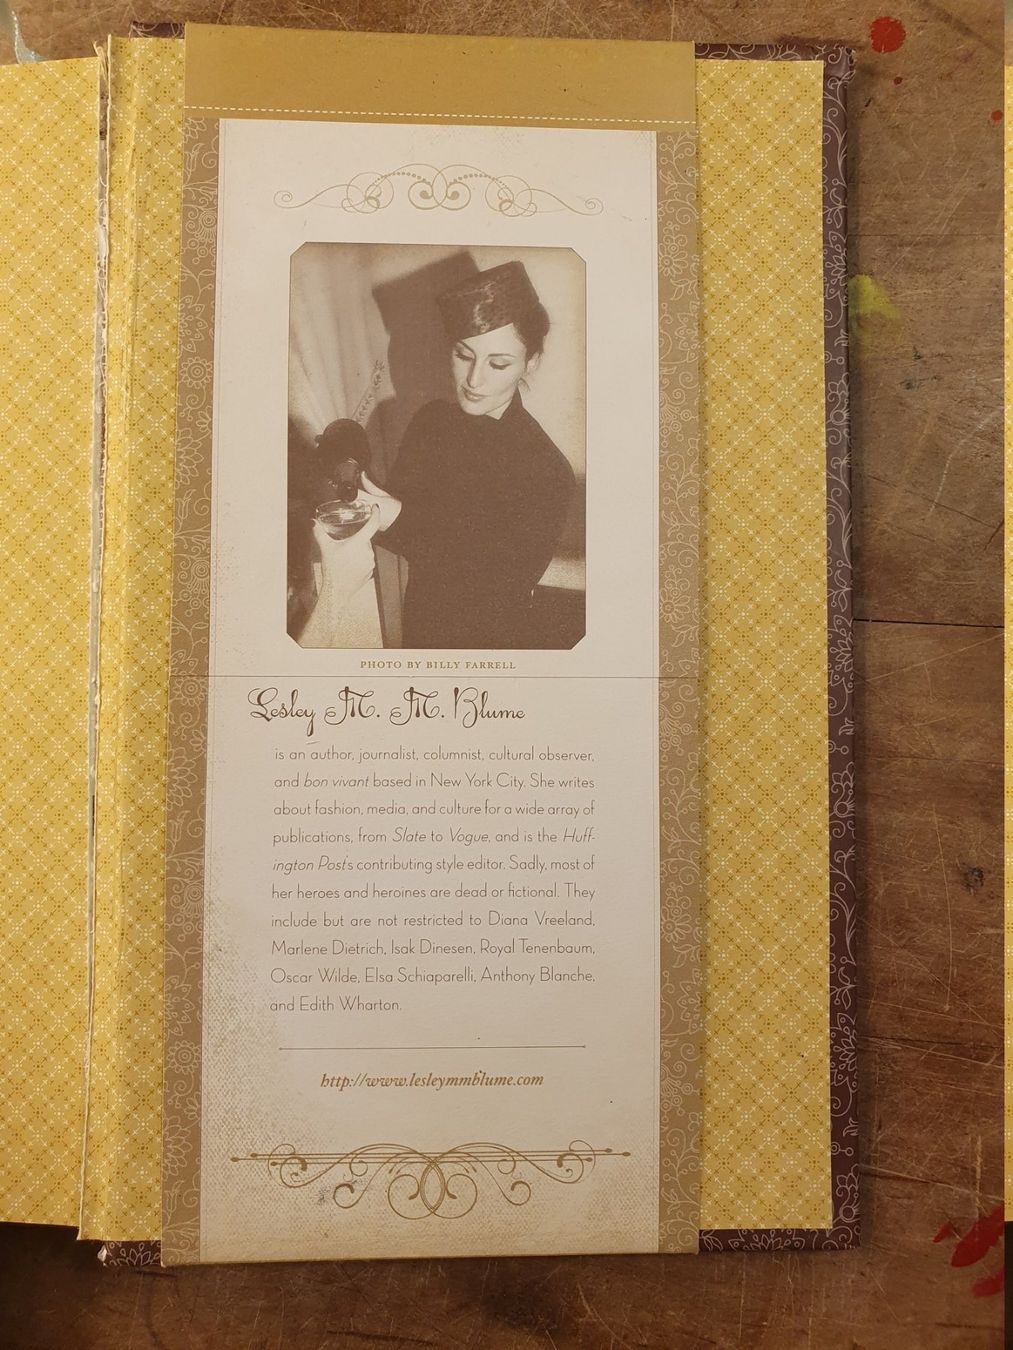 PHOTO BY BILLY FARRELL
Lesley M. M. Blume
is an author, journalist, columnist, cultural observer,
and bon vivant based in New York City. She writes
about fashion, media, and culture for a wide array of
publications, from Slate to Vogue, and is the Huff-
ington Post's contributing style editor. Sadly, most of
her heroes and heroines are dead or fictional. They
include but are not restricted to Diana Vreeland,
Marlene Dietrich, Isak Dinesen, Royal Tenenbaum,
Oscar Wilde, Elsa Schiaparelli, Anthony Blanche,
and Edith Wharton.
http://www.lesleymmblume.com